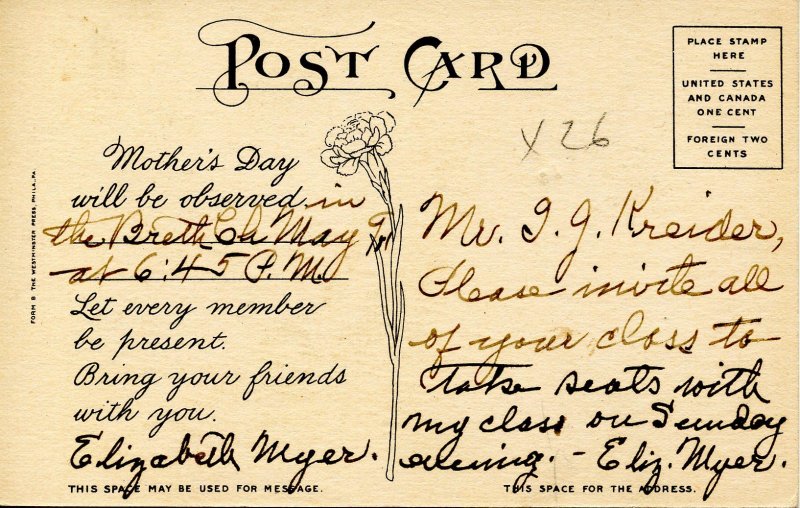 POST CARD
PLACE STAMP
HERE
UNITED STATES
AND CANADA
ONE CENT
FOREIGN TWO
CENTS
X 26
Mother's Day
will be observed in
the Breth Ch May
at 6:45 P.M.
Let every member
be present.
Bring your friends
with you.
Elizabeth Myer.
Mr. J. J. Kreider,
Please invite all
of your class to
take seats with
my class on Sunday
evening. - Eliz. Myer.
FORM B THE WESTMINSTER PRESS, PHILA., PA.
THIS SPACE MAY BE USED FOR MESSAGE.
THIS SPACE FOR THE ADDRESS.